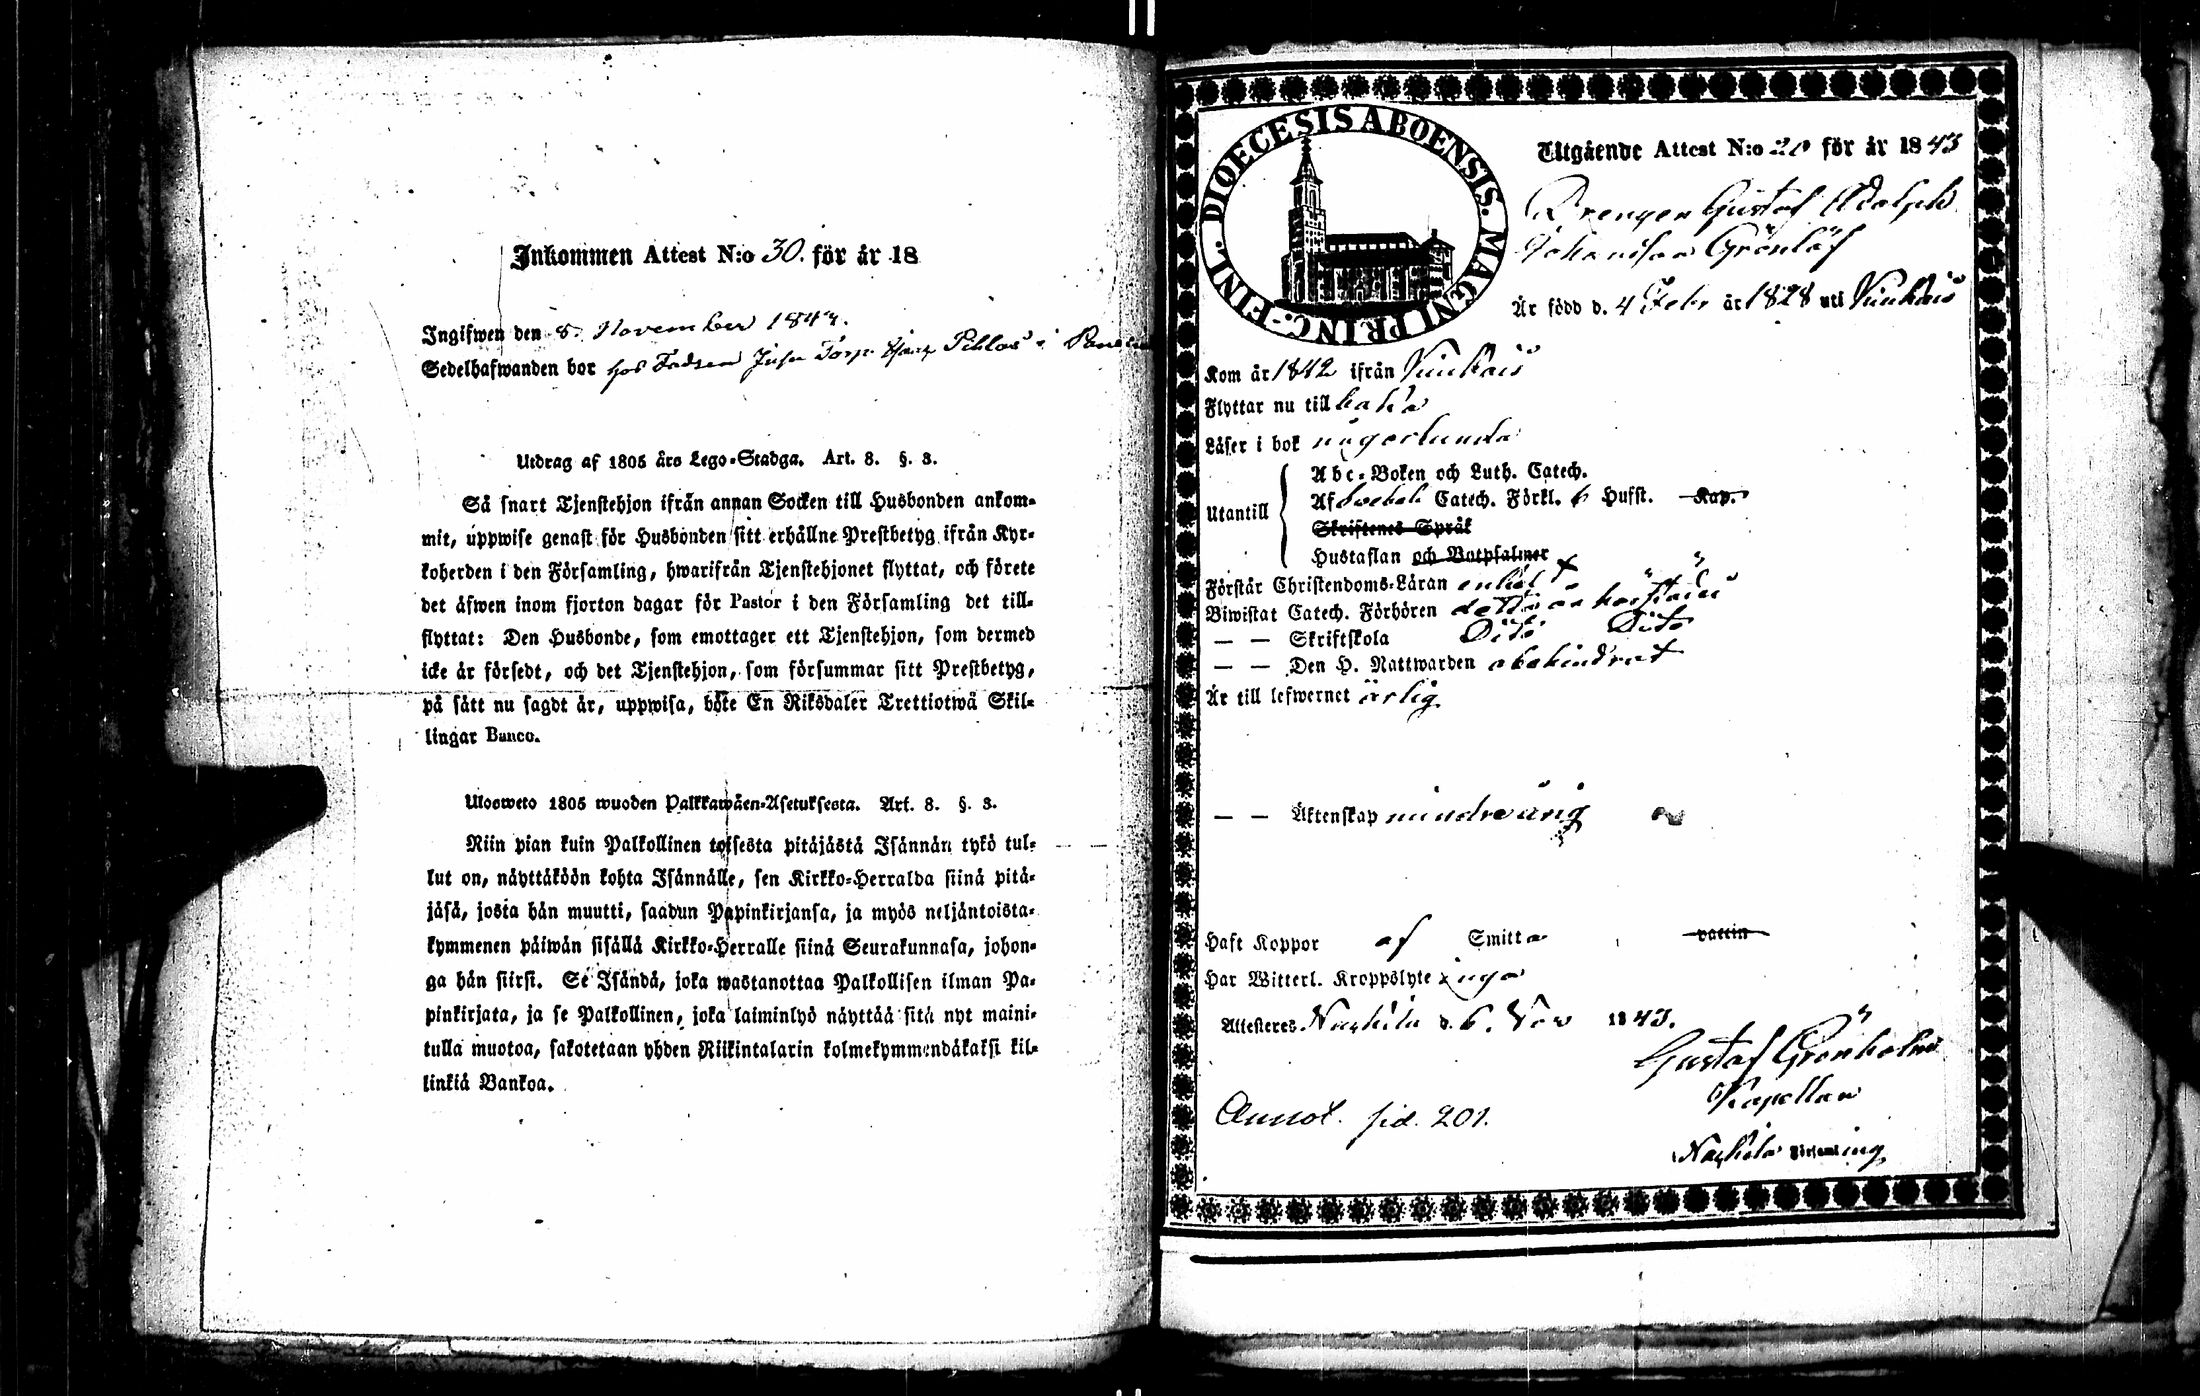 Inkommen Attest N:o 30. för år 18
Ingifwen den 8. November 1843.
Sedelhafwanden bor hos
Utdrag af 1805 års Lego-Stadga. Art. 8. §. 3.
Så snart Tjenstehjon ifrån annan Socken till Husbonden ankom-
mit, uppwise genast för Husbonden sitt erhållne Prestbetyg ifrån Kyr-
koherden i den Församling, hwarifrån Tjenstehjonet flyttat, och förete
det äfwen inom fjorton dagar för Pastor i den Församling det till-
flyttat: Den Husbonde, som emottager ett Tjenstehjon, som dermed
icke är försedt, och det Tjenstehjon, som försummar sitt Prestbetyg,
på sätt nu sagdt är, uppwisa, böte En Riksdaler Trettiotwå Skil-
lingar Banco.
Ulosweto 1805 wuoden Palkkawäen-Asetuksesta. Art. 8. §. 3.
Niin pian kuin Palkollinen toisesta pitäjästä Isännän tykö tul-
lut on, näyttäköön kohta Isännälle, sen Kirkko-Herralda siinä pitä-
jäsä, josta hän muutti, saadun Papinkirjansa, ja myös neljäntoista-
kymmenen päiwän sisällä Kirkko-Herralle siinä Seurakunnasa, johon-
ga hän siirsi. Se Isändä, joka wastanottaa Palkollisen ilman Pa-
pinkirjata, ja se Palkollinen, joka laiminlyö näyttää sitä nyt maini-
tulla muotoa, sakotetaan yhden Riikintalarin kolmekymmendäkaksi kil-
linkiä Bankoa.
DIOECESIS ABOENSIS. MAGNI PRINC.-FINL.
Utgående Attest N:o 20 för år 1843
Drengen Gustaf Adolph
Johansson Grönlöf
Är född d. 4 Febr år 1828 uti
Kom år 1842 ifrån
Flyttar nu till baka
Läser i bok någorlunda
Utantill
Abc-Boken och Luth. Catech.
Af Svebeli Catech. Förkl. 6 Hufst. Kap.
Skriftenes Språk
Hustaflan och Botpsalmer
Förstår Christendoms-Läran enkelt
Biwistat Catech. Förhören
— — Skriftskola Dito Dito
— — Den H. Nattwarden obehindrat
Är till lefwernet ärlig
— — Äktenskap minderårig
Haft Koppor af Smitta vaccin
Har Witterl. Kroppslyte inga
Attesteres Nakkila d. 6. Nov 1843.
Gustaf Grönholm
Kapellan
Annot. sid. 201.
Nakkila Församling